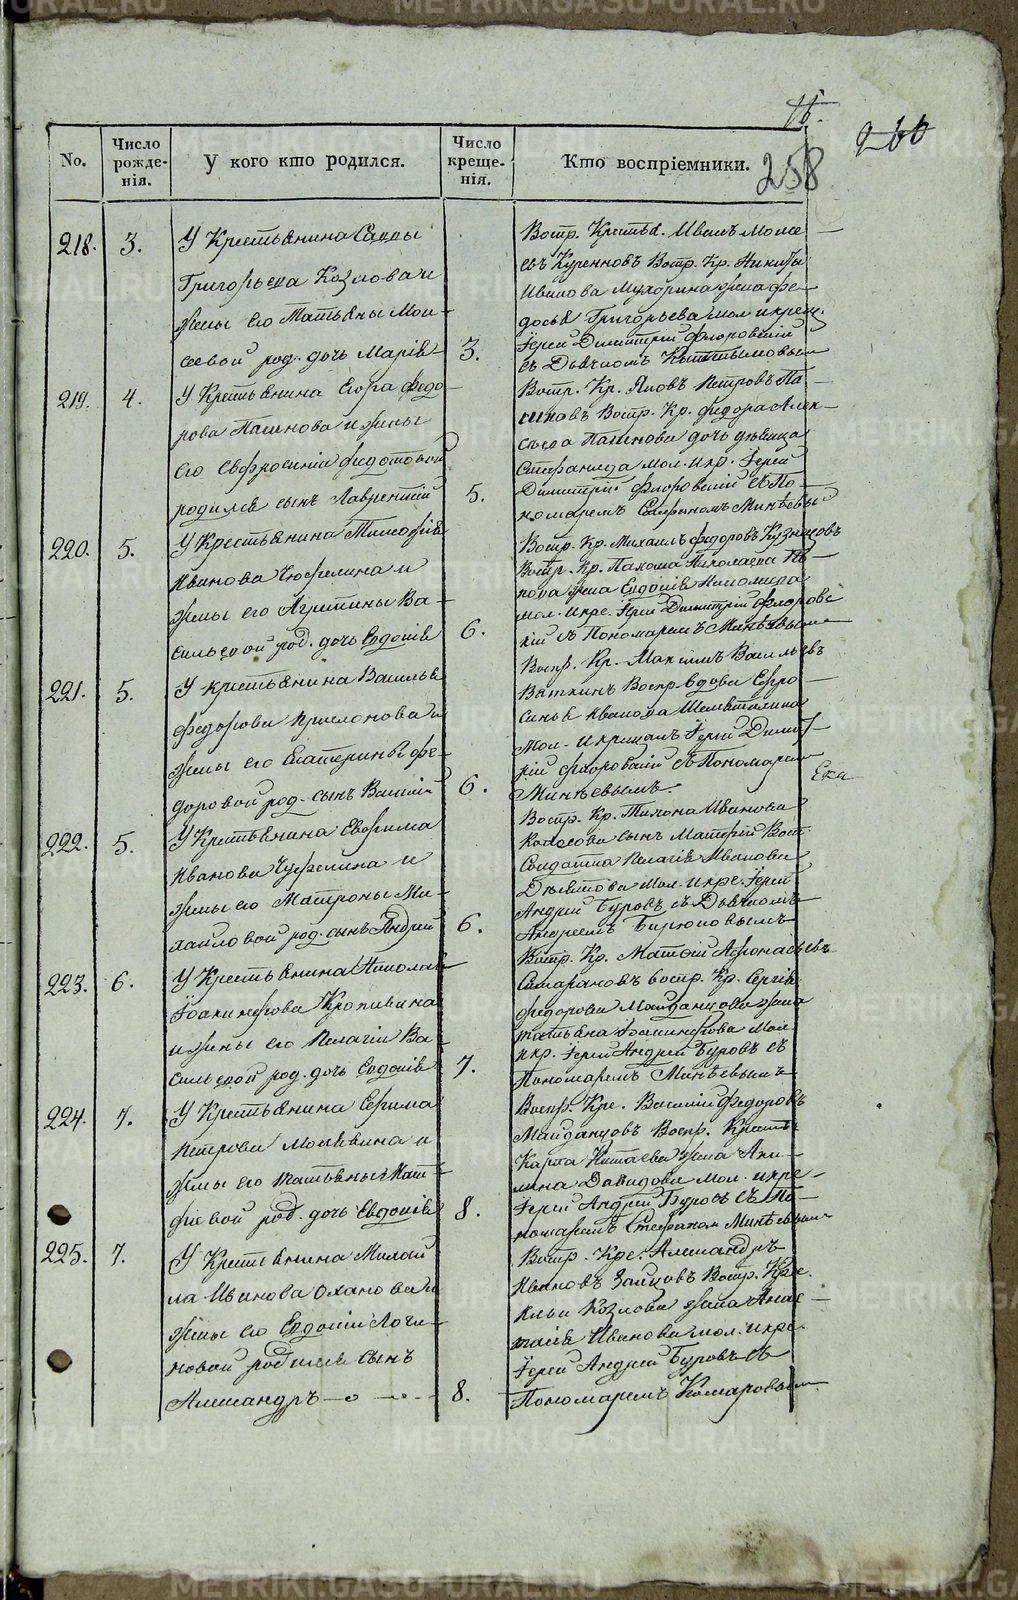 15.
266
258
No.
Число рожде-нія.
У кого кто родился.
Число креще-нія.
Кто воспріемники.
218. 3.
У Крестьянина Саввы
Григорьева Козлова и
жены его Татьяны Мои-
сеевой род. дочь Марія 3.
Воспр. Крестья. Иванъ Моисе-
евъ Куренновъ Воспр. Кр. Никиты
Иванова Мухорина жена Фе-
досья Григорьева мол. и крещ.
Іерей Димитрій Флоровскій
съ Дьячкомъ
219. 4.
У Крестьянина Егора Федо-
рова Пашнова и жены
его Евфросиніи Федотовой
родился сынъ Лаврентій 5.
Воспр. Кр. Яковъ Петровъ Па-
шновъ Воспр. Кр. Федора Алек-
сѣева Пашнова дочь дѣвица
Стефанида мол. и кр. Іерей
Димитрій Флоровскій съ По-
номаремъ Стефаномъ Минѣевы
220. 5.
У Крестьянина Тимофѣя
Иванова Чюфелина и
жены его Агрипины Ва-
сильевой род. дочь Евдокія 6.
Воспр. Кр. Михаилъ Федоровъ Кузнецовъ
Воспр. Кр. Пахома Николаева
жена Евдокія
мол. и кре. Іерей Димитрій Флоровс
кій съ Пономаремъ Минѣевым
221. 5.
У крестьянина Василья
Федорова и
жены его Екатерины Фе-
доровой род. сынъ Василій 6.
Воспр. Кр. Максимъ Васильевъ
Вяткинъ Воспр. вдова Евфро-
синья Иванова
Мол. и крещалъ Іерей Димит-
рій Флоровскій съ Пономарем
Минѣевымъ.
Ека
222. 5.
У Крестьянина Евфима
Иванова Чуфелина и
жены его Матроны Ми-
хайловой род. сынъ Андрей 6.
Воспр. Кр. Тихона Иванова
Колосова сынъ Матфей Восп.
Солдатка Пелагія Иванова
Девятова Мол. и кре. Іерей
Андрей Буровъ съ Дьячкомъ
Андреемъ Бирюковымъ
223. 6.
У Крестьянина Николая
Іоакинфова Кропивина
и жены его Пелагіи Ва-
сильевой род. дочь Евдокія 7.
Воспр. Кр. Матфій Афонасьевъ
Самариновъ воспр. Кр. Сергія
Федорова Майданцова жена
Татьяна Іоакинфова Мол.
и кр. Іерей Андрей Буровъ съ
Пономаремъ Минѣевымъ
224. 7.
У Крестьянина Ефима
Петрова Москвина и
жены его Татьяны Мат-
фіевой род. дочь Евдокія 8.
Воспр. Кре. Василій Федоровъ
Майданцовъ Воспр. Крестья
Карпа Китаева жена Аки-
лина Давидова мол. и кре-
Іерей Андрей Буровъ съ По-
номаремъ Стефаном Минѣевым
225. 7.
У Крестьянина Михай
ла Иванова Оханова и
жены его Евдокіи Логи-
новой родился сынъ
Александръ 8.
Воспр. Кре. Александръ
Ивановъ Зайцовъ Воспр. Кре.
Ильи Козлова жена Анас-
тасія Иванова мол. и кре.
Іерей Андрей Буровъ съ
Пономаремъ Комаровым.
METRIKI.GASO-URAL.RU